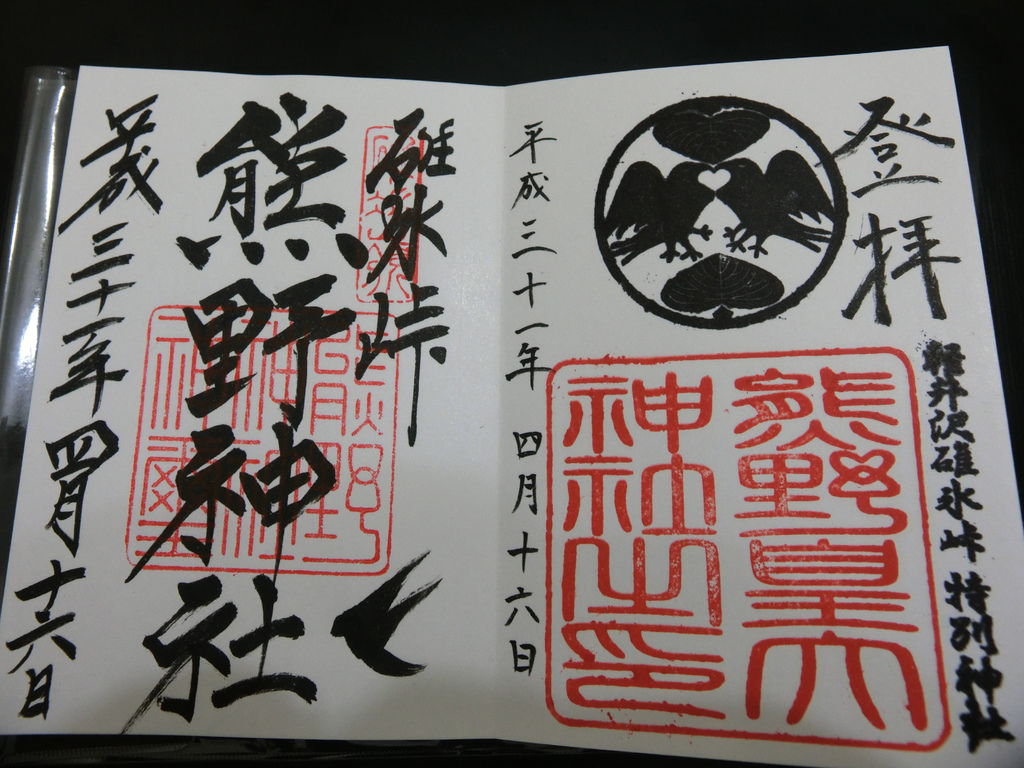 登拝
軽井沢碓氷峠特別神社
熊野皇大
神社之印
平成三十一年四月十六日
碓氷峠
熊野神社
平成三十一年四月十六日